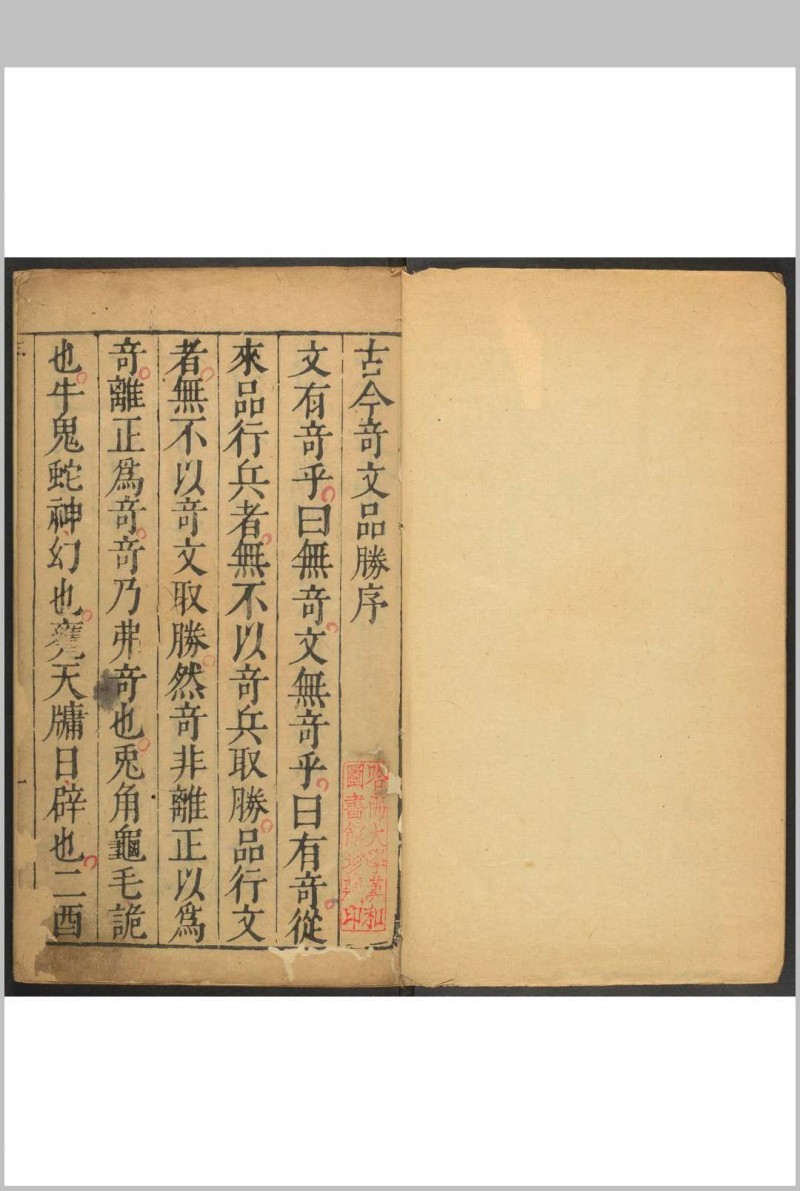 古今奇文品勝序
文有奇乎曰無奇文無奇乎曰有奇從
來品行兵者無不以奇兵取勝品行文
者無不以奇文取勝然奇非離正以爲
奇離正爲奇奇乃弗奇也兎角龜毛詭
也牛鬼蛇神幻也甕天牗日辟也二酉
哈佛大學漢和
圖書館珍藏印